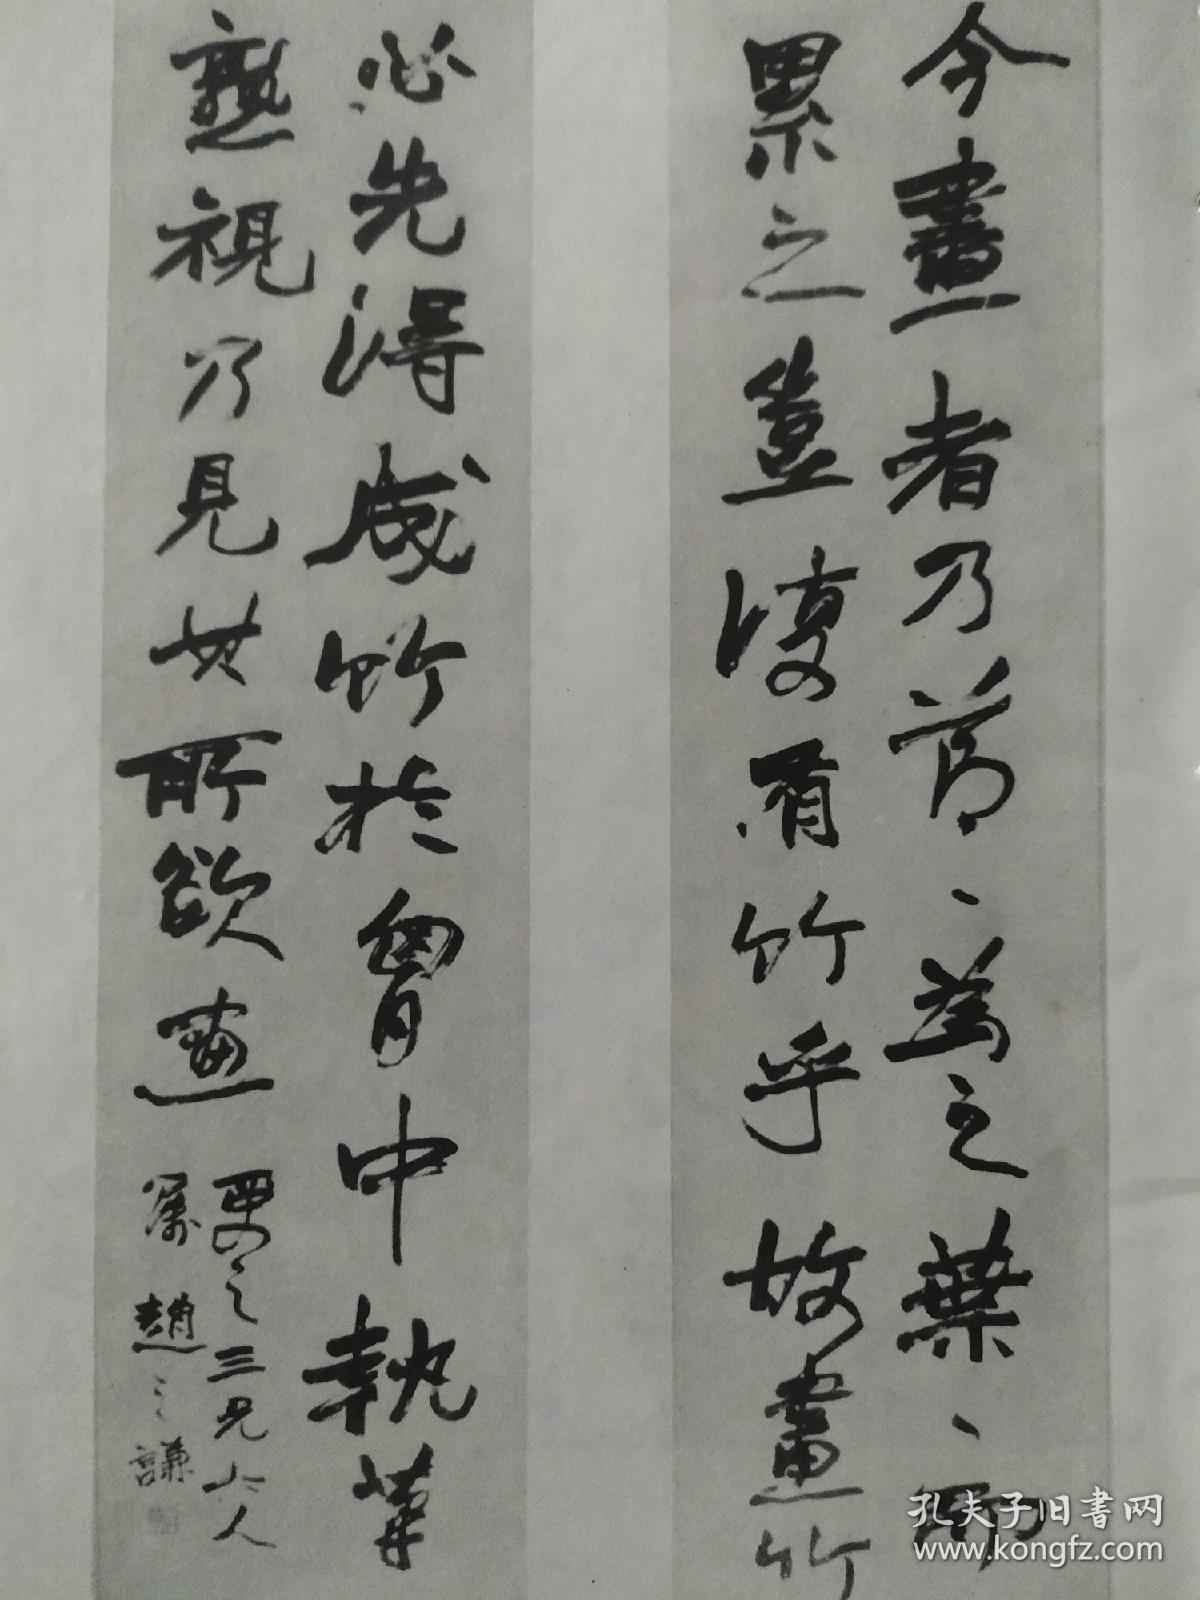 今畫者乃節、為之葉、而
累之豈復有竹乎故畫竹
必先得成竹於胷中執筆
熟視乃見其所欲畫
三兄大人
屬趙之謙
孔夫子旧書网
www.kongfz.com